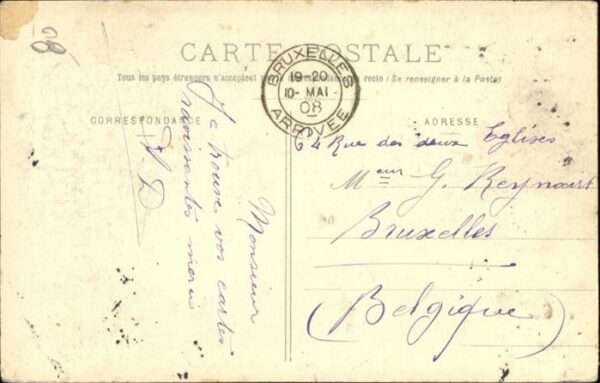 08
CARTE POSTALE
Tous les pays étrangers n'acceptent recto (Se renseigner à la Poste)
BRUXELLES
19-20
10- MAI -
08
ARRIVÉE
CORRESPONDANCE
Monsieur
Je trouve vos cartes
ravissantes merci
ADRESSE
64 Rue des deux Eglises
Meur G. Reynaert
Bruxelles
(Belgique)